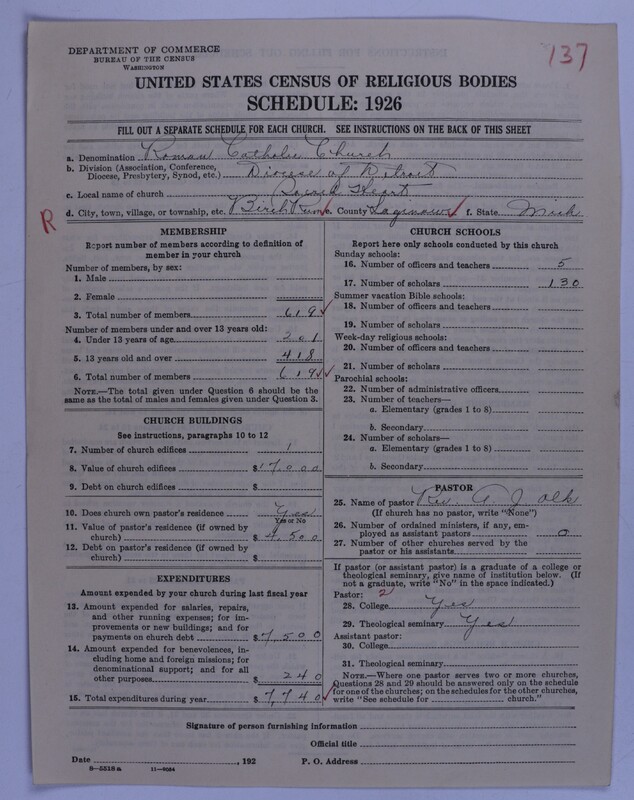 DEPARTMENT OF COMMERCE
BUREAU OF THE CENSUS
WASHINGTON
137
UNITED STATES CENSUS OF RELIGIOUS BODIES
SCHEDULE: 1926
FILL OUT A SEPARATE SCHEDULE FOR EACH CHURCH. SEE INSTRUCTIONS ON THE BACK OF THIS SHEET
a. Denomination Roman Catholic Church
b. Division (Association, Conference, Diocese, Presbytery, Synod, etc.) Diocese of Detroit
c. Local name of church Sacred Heart
R d. City, town, village, or township, etc. Birch Run e. County Saginaw f. State Mich
MEMBERSHIP
Report number of members according to definition of
member in your church
Number of members, by sex:
1. Male
2. Female
3. Total number of members 619
Number of members under and over 13 years old:
4. Under 13 years of age 201
5. 13 years old and over 418
6. Total number of members 619
NOTE.—The total given under Question 6 should be the
same as the total of males and females given under Question 3.
CHURCH BUILDINGS
See instructions, paragraphs 10 to 12
7. Number of church edifices 1
8. Value of church edifices $17000
9. Debt on church edifices $
10. Does church own pastor's residence Yes
Yes or No
11. Value of pastor's residence (if owned by
church) $4,500
12. Debt on pastor's residence (if owned by
church) $
EXPENDITURES
Amount expended by your church during last fiscal year
13. Amount expended for salaries, repairs,
and other running expenses; for im-
provements or new buildings; and for
payments on church debt $7500
14. Amount expended for benevolences, in-
cluding home and foreign missions; for
denominational support; and for all
other purposes $240
15. Total expenditures during year $7,740
CHURCH SCHOOLS
Report here only schools conducted by this church
Sunday schools:
16. Number of officers and teachers 5
17. Number of scholars 130
Summer vacation Bible schools:
18. Number of officers and teachers
19. Number of scholars
Week-day religious schools:
20. Number of officers and teachers
21. Number of scholars
Parochial schools:
22. Number of administrative officers
23. Number of teachers—
a. Elementary (grades 1 to 8)
b. Secondary
24. Number of scholars—
a. Elementary (grades 1 to 8)
b. Secondary
PASTOR
25. Name of pastor Rev. A J Alk
(If church has no pastor, write "None")
26. Number of ordained ministers, if any, em-
ployed as assistant pastors 0
27. Number of other churches served by the
pastor or his assistants
If pastor (or assistant pastor) is a graduate of a college or
theological seminary, give name of institution below. (If
not a graduate, write "No" in the space indicated.)
Pastor: 2
28. College Yes
29. Theological seminary Yes
Assistant pastor:
30. College
31. Theological seminary
NOTE.—Where one pastor serves two or more churches,
Questions 28 and 29 should be answered only on the schedule
for one of the churches; on the schedules for the other churches,
write "See schedule for church."
Signature of person furnishing information
Official title
Date , 192 P. O. Address
8—5518a 11—9064